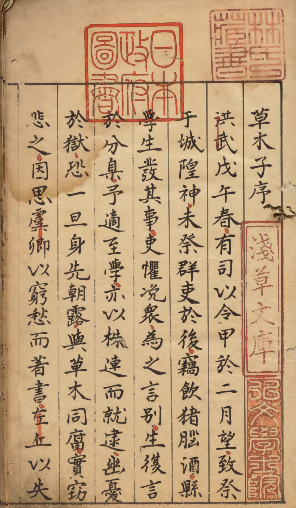 草木子序
洪武戊午春有司以令甲於二月望致祭
于城隍神未祭群吏於後竊飲猪腦酒縣
學生發其事吏懼浼衆為之言別生復言
於分臬予適至學亦以株連而就逮幽憂
於獄恐一旦身先朝露與草木同腐實竊
悲之因思虞卿以窮愁而著書左丘以失
日本
政府
圖書
林氏
藏書
淺草文庫
弘文學士院